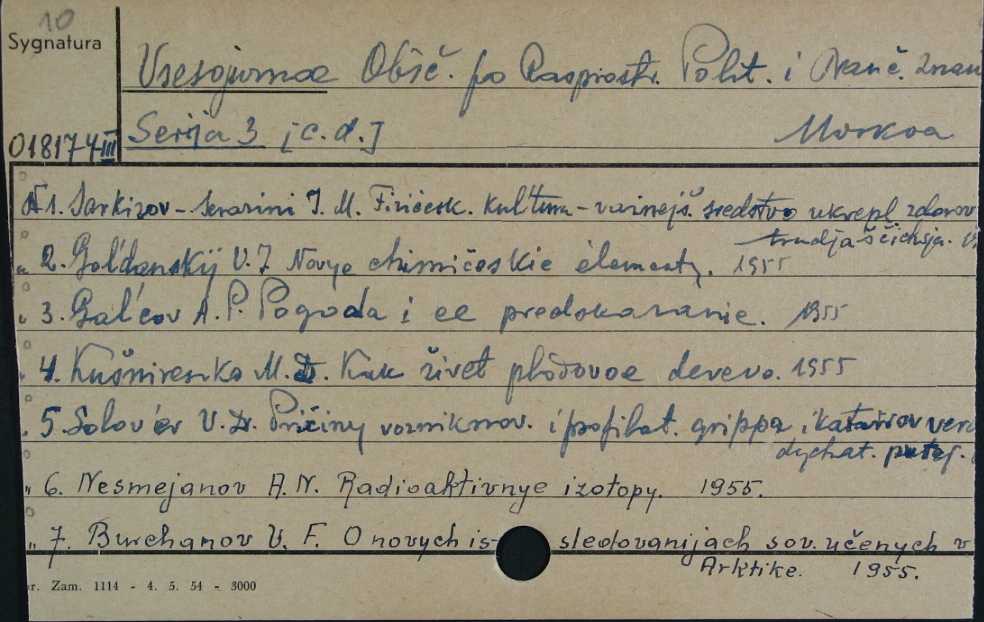 10
Sygnatura
Vsesojuznoe Obšč. po Rasprostr. Polit. i Naučn. Znan
Serija 3 [c.d.] Moskva
01817411 III
№1. Sarkizov-Serazini I. M. Fizičesk. kul'tura - važnejš. sredstvo ukrepl. zdorov
trudjaščichsja.
" 2. Gol'danskij V. I Novye chimičeskie elementy. 1955
" 3. Gal'cov A. P. Pogoda i ee predskazanie. 1955
" 4. Kušnirenko M. D. Kak živet plodovoe derevo. 1955
" 5. Solov'ev V. D. Pričiny vozniknov. i profilat. grippa i katarrov verc
dychat. putej.
" 6. Nesmejanov A. N. Radioaktivnye izotopy. 1955.
" 7. Burchanov V. F. O novych is- sledovanijach sov. učenych v
Arktike. 1955.
r. Zam. 1114 - 4. 5. 54 - 3000